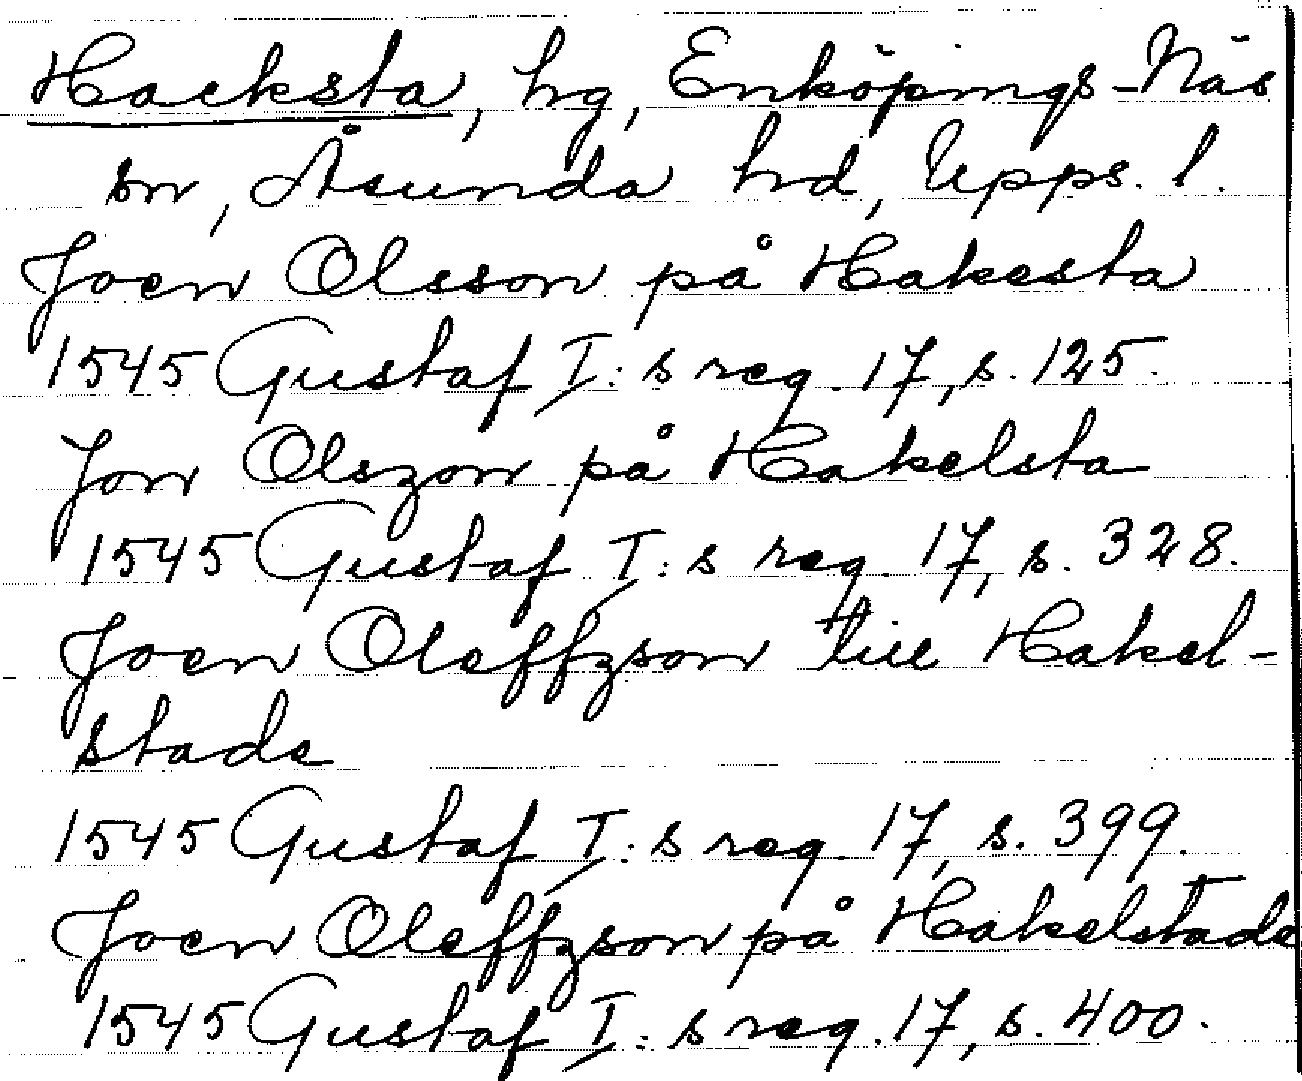 Hacksta, hg, Enköpings-Näs
sn, Åsunda hd, Upps. l.
Joen Olsson på Hakesta
1545 Gustaf I:s reg. 17, s. 125.
Jon Olszon på Hakelsta
1545 Gustaf I:s reg. 17, s. 328.
Joen Oleffzson till Hakel-
stade
1545 Gustaf I:s reg. 17, s. 399.
Joen Oleffzson på Hakelstade
1545 Gustaf I:s reg. 17, s. 400.